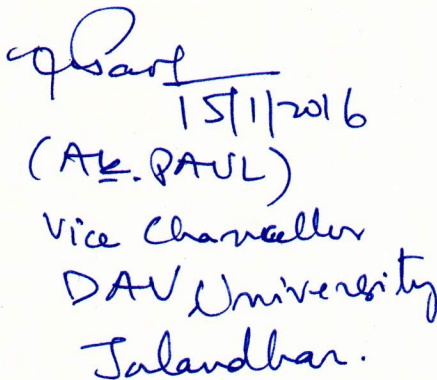 15/1/2016
(AK. PAUL)
Vice Chancellor
DAV University
Jalandhar.